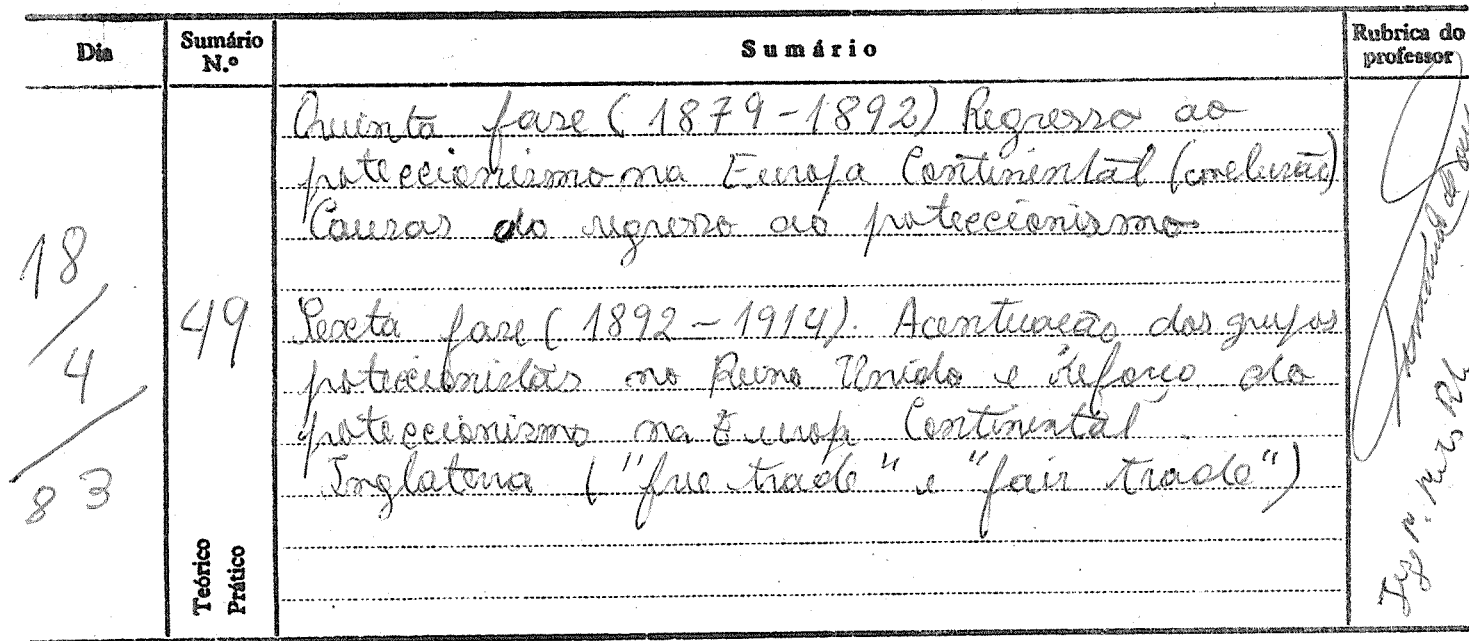 Dia
Sumário N.º
Sumário
Rubrica do professor
18/4/83
49
Quinta fase (1879-1892) Regresso ao
proteccionismo na Europa Continental (conclusão)
Causas do regresso ao proteccionismo
Sexta fase (1892-1914). Acentuação dos grupos
proteccionistas no Reino Unido e reforço do
proteccionismo na Europa Continental.
Inglaterra ("free trade" e "fair trade")
Teórico
Prático